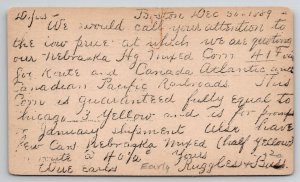 D/Sirs Boston Dec 30-1889
We would call your attention to
the low price at which we are quoting
our Nebraska Hg Mixed Corn 41
for Route and Canada Atlantic and
Canadian Pacific Railroads. This
Corn is guaranteed fully equal to
Chicago 3 Yellow and is for prompt
or January shipment also have
few Cars Nebraska Mixed (half yellow)
route @ 40½c Yours
Wire early Ruggles &